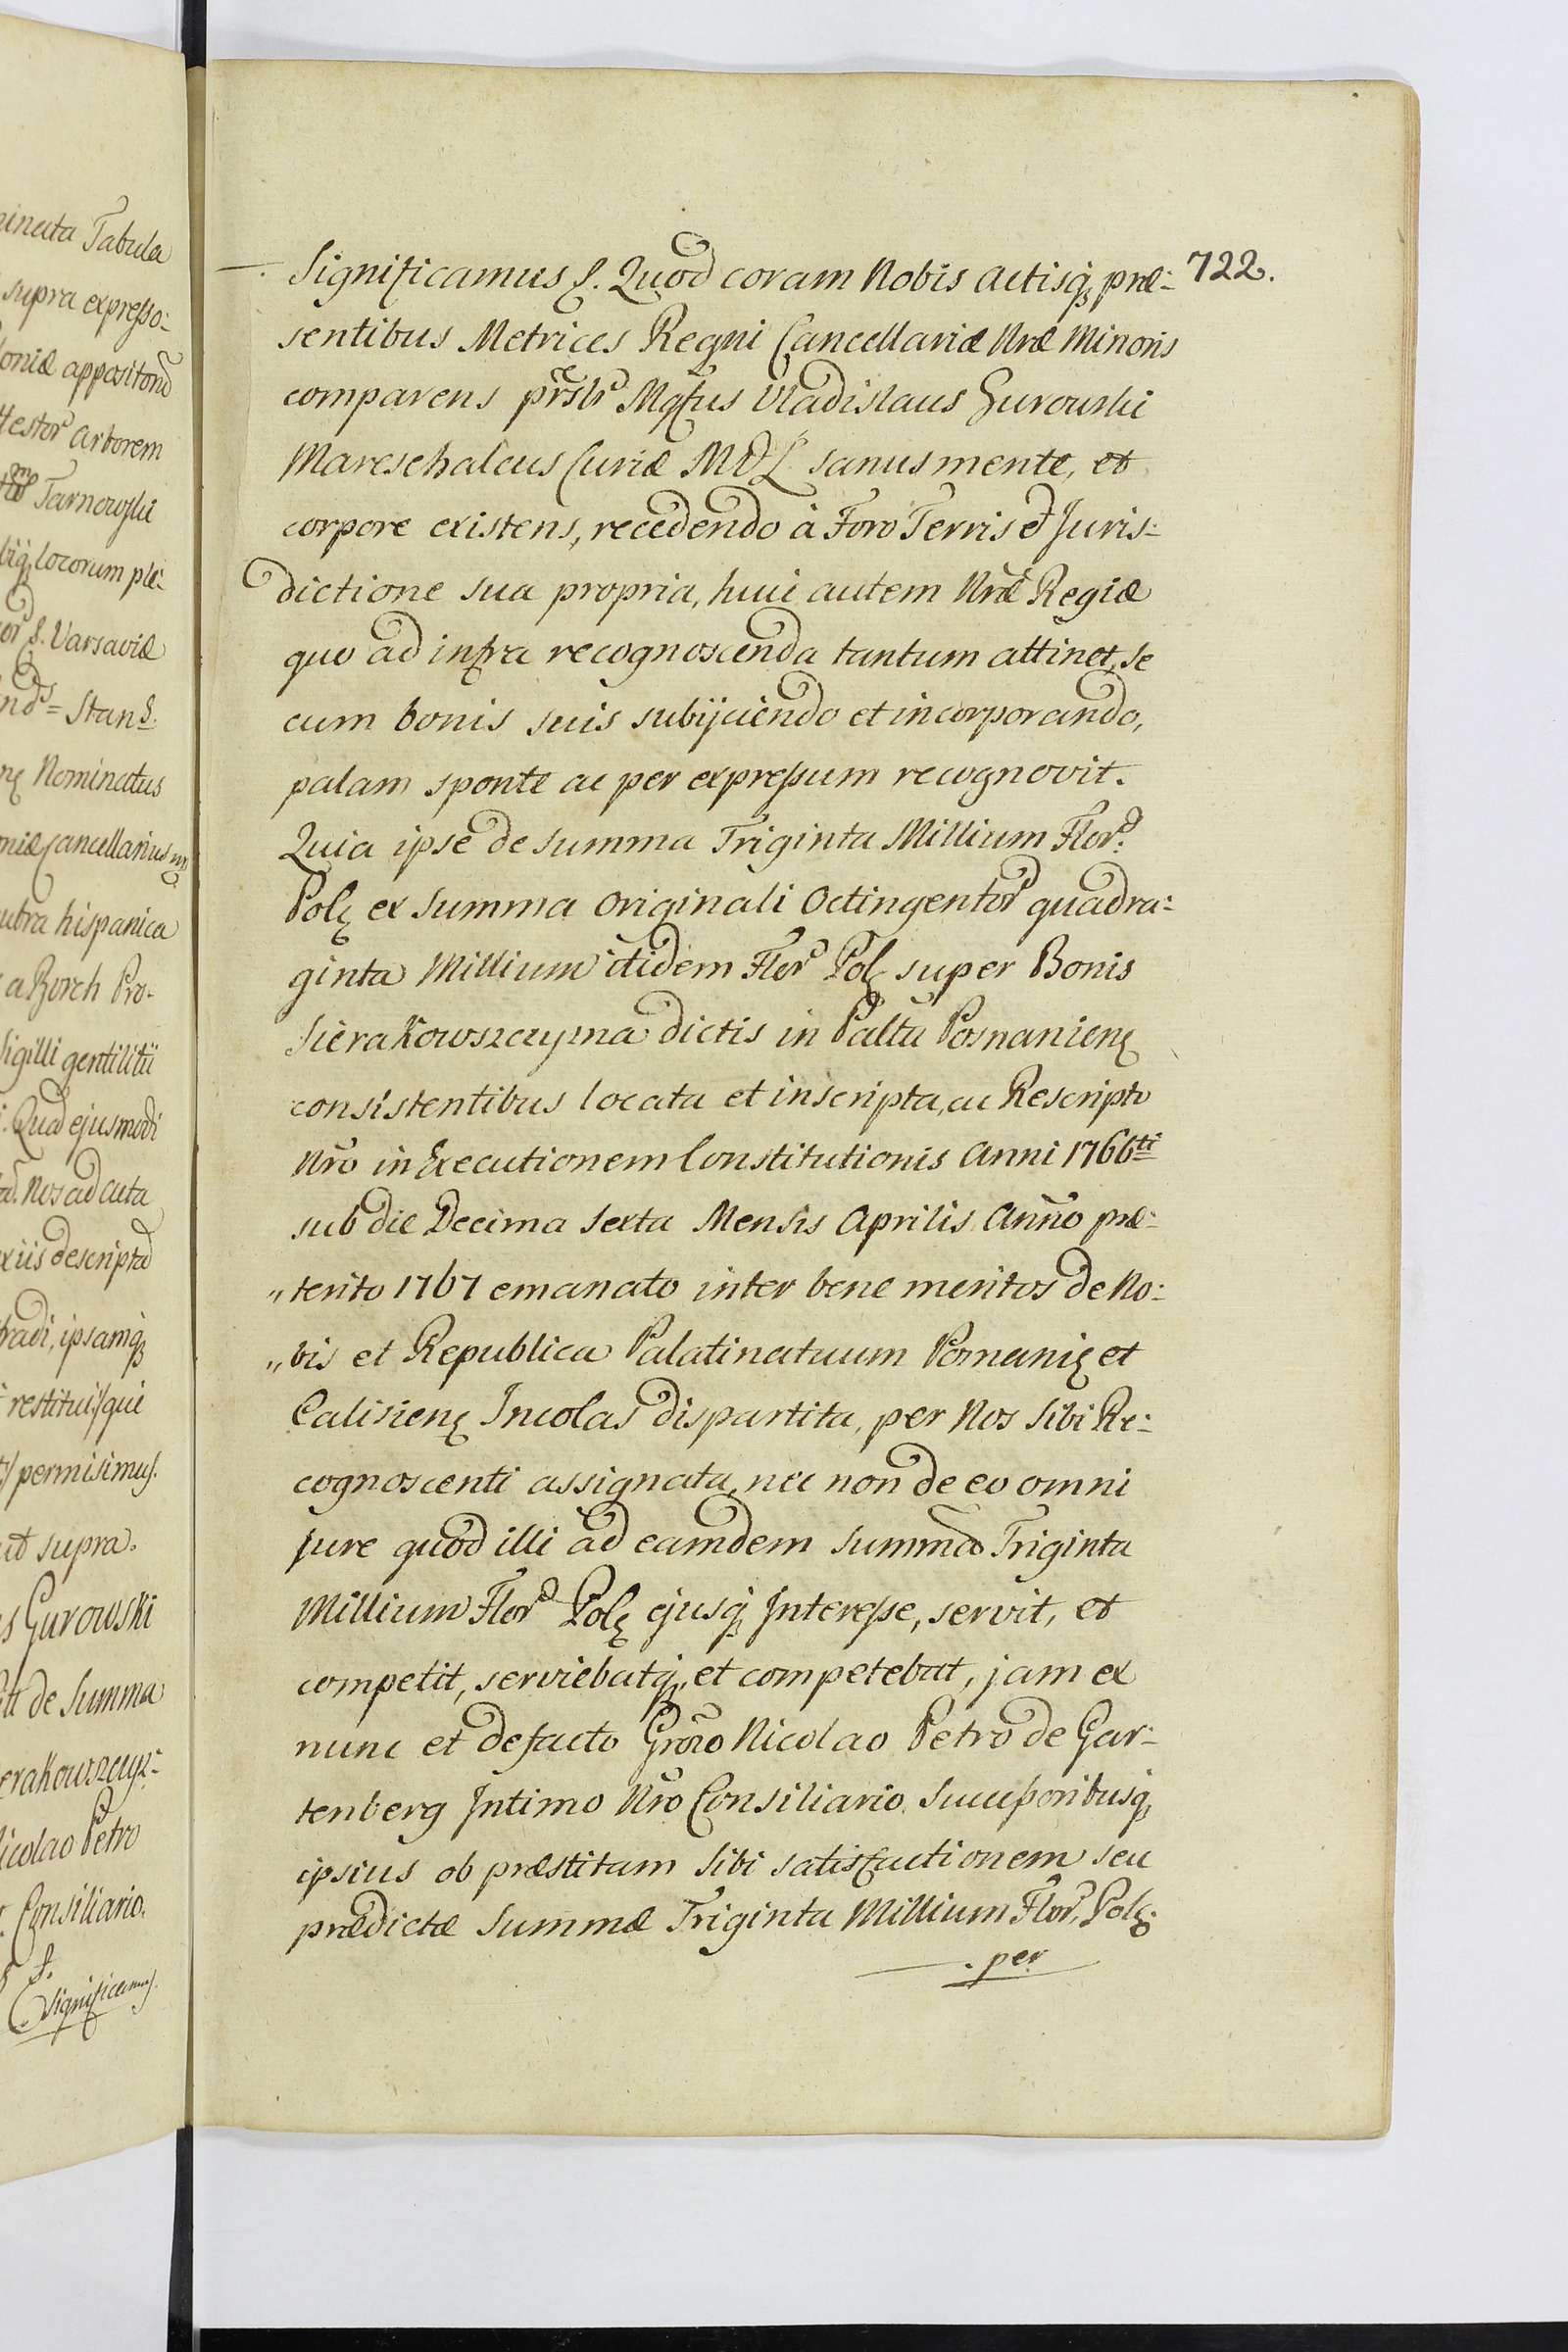 inata Tabula
supra expresso:
loniæ appositorũ
Nestor arborem
Tarnowski
locorum ple:
S. Varsaviæ
Stans.
Nominatus
niæ Cancellarius
utra hispanica
a Borch Pro-
Sigilli gentilitii
Quad ejusmodi
Nos ad acta
xiis descripta
tradi, ipsamq
restitui, qui
permisimus.
ut supra.
s Gurowski
de Summa
erakowszczyz:
icolao Petro
Consiliario.
Significamus.
722.
Significamus S. Quod coram Nobis actisq præ:
sentibus Metrices Regni Cancellariæ Nræ Minoris
comparens prslr Mgfcus Vladislaus Gurowski
Mareschalcus Curiæ M D L sanus mente, et
corpore existens, recedendo à Foro Terris et Juris:
dictione sua propria, huic autem Nræ Regiæ
quo ad infra recognoscenda tantum attinet, se
cum bonis suis subijciendo et incorporando,
palam sponte ac per expressum recognovit.
Quia ipse de summa Triginta Millium Flor:
Pol ex summa originali Octingentor quadra:
ginta Millium itidem Flor Pol super Bonis
Sierakowszczyzna dictis in Paltu Posnanien
consistentibus locata et inscripta, ac Rescripto
Nro in Executionem Constitutionis Anni 1766ti
sub die Decima Sexta Mensis Aprilis Anno præ:
„terito 1767 emanato inter bene meritos de No:
„bis et Republica Palatinatuum Posnanię et
Calisien Incolas dispartita, per Nos sibi Re:
cognoscenti assignata, nec non de eo omni
jure quod illi ad eamdem summa Triginta
Millium Flor Pol ejusq Interesse, servit, et
competit, serviebatq, et competebat, jam ex
nunc et defacto Grõso Nicolao Petro de Gar:
tenberg Intimo Nro Consiliario Successoribusq
ipsius ob præstitam sibi satisfactionem seu
prædictæ summæ Triginta Millium Flor, Pol.
per